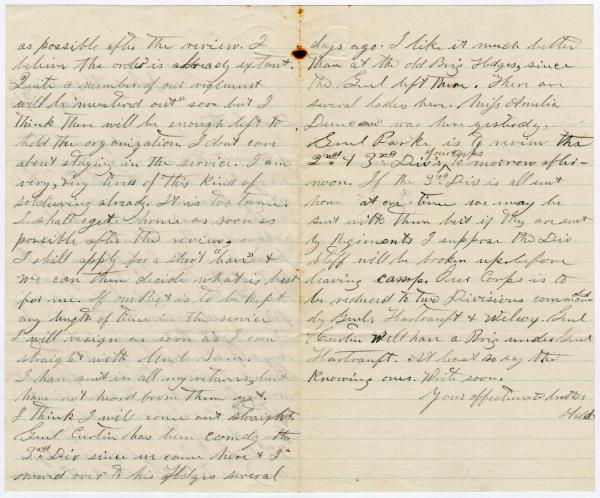 as possible after the review. I
believe the order is already extant.
Quite a number of our regiment
will be "musterd out" soon but I
think there will be enough left to
hold the organization. I dont care
about staying in the service. I am
very, very tired of this kind of
soldiering already. It is too tame.
I shall get home as soon as
possible after the review,
I shall apply for a short "leave" &
we can then decide what is best
for me. If our Regt is to be kept
any length of time in the service
I will resign as soon as I can
straight with Uncl Sam.
I have sent in all my returns, but
have not heard from them yet.
I think I will come out straight.
Genl Curtin has been comdg the
3rd Div since we came here & I
moved over to his Hdqrs several
days ago. I like it much better
than at the old Brig Hdqrs, since
the Genl left there. There are
several ladies here. Miss Amelia
Duncan was here yesterday.
Genl Parke is to review the
2nd & 3rd Div's of our Corps tomorrow after-
noon. If the 3rd Div is all sent
home at one time we may be
sent with them but if they are sent
by Regiments I suppose the Div
Staff will be broken up before
leaving camp. Our Corps is to
be reduced to two Divisions commanded
by Genls Hartranft & Wilcox. Genl
Curtin will have a Brig under Genl
Hartranft. At least so say the
knowing ones. Write soon.
Your affectionate brother